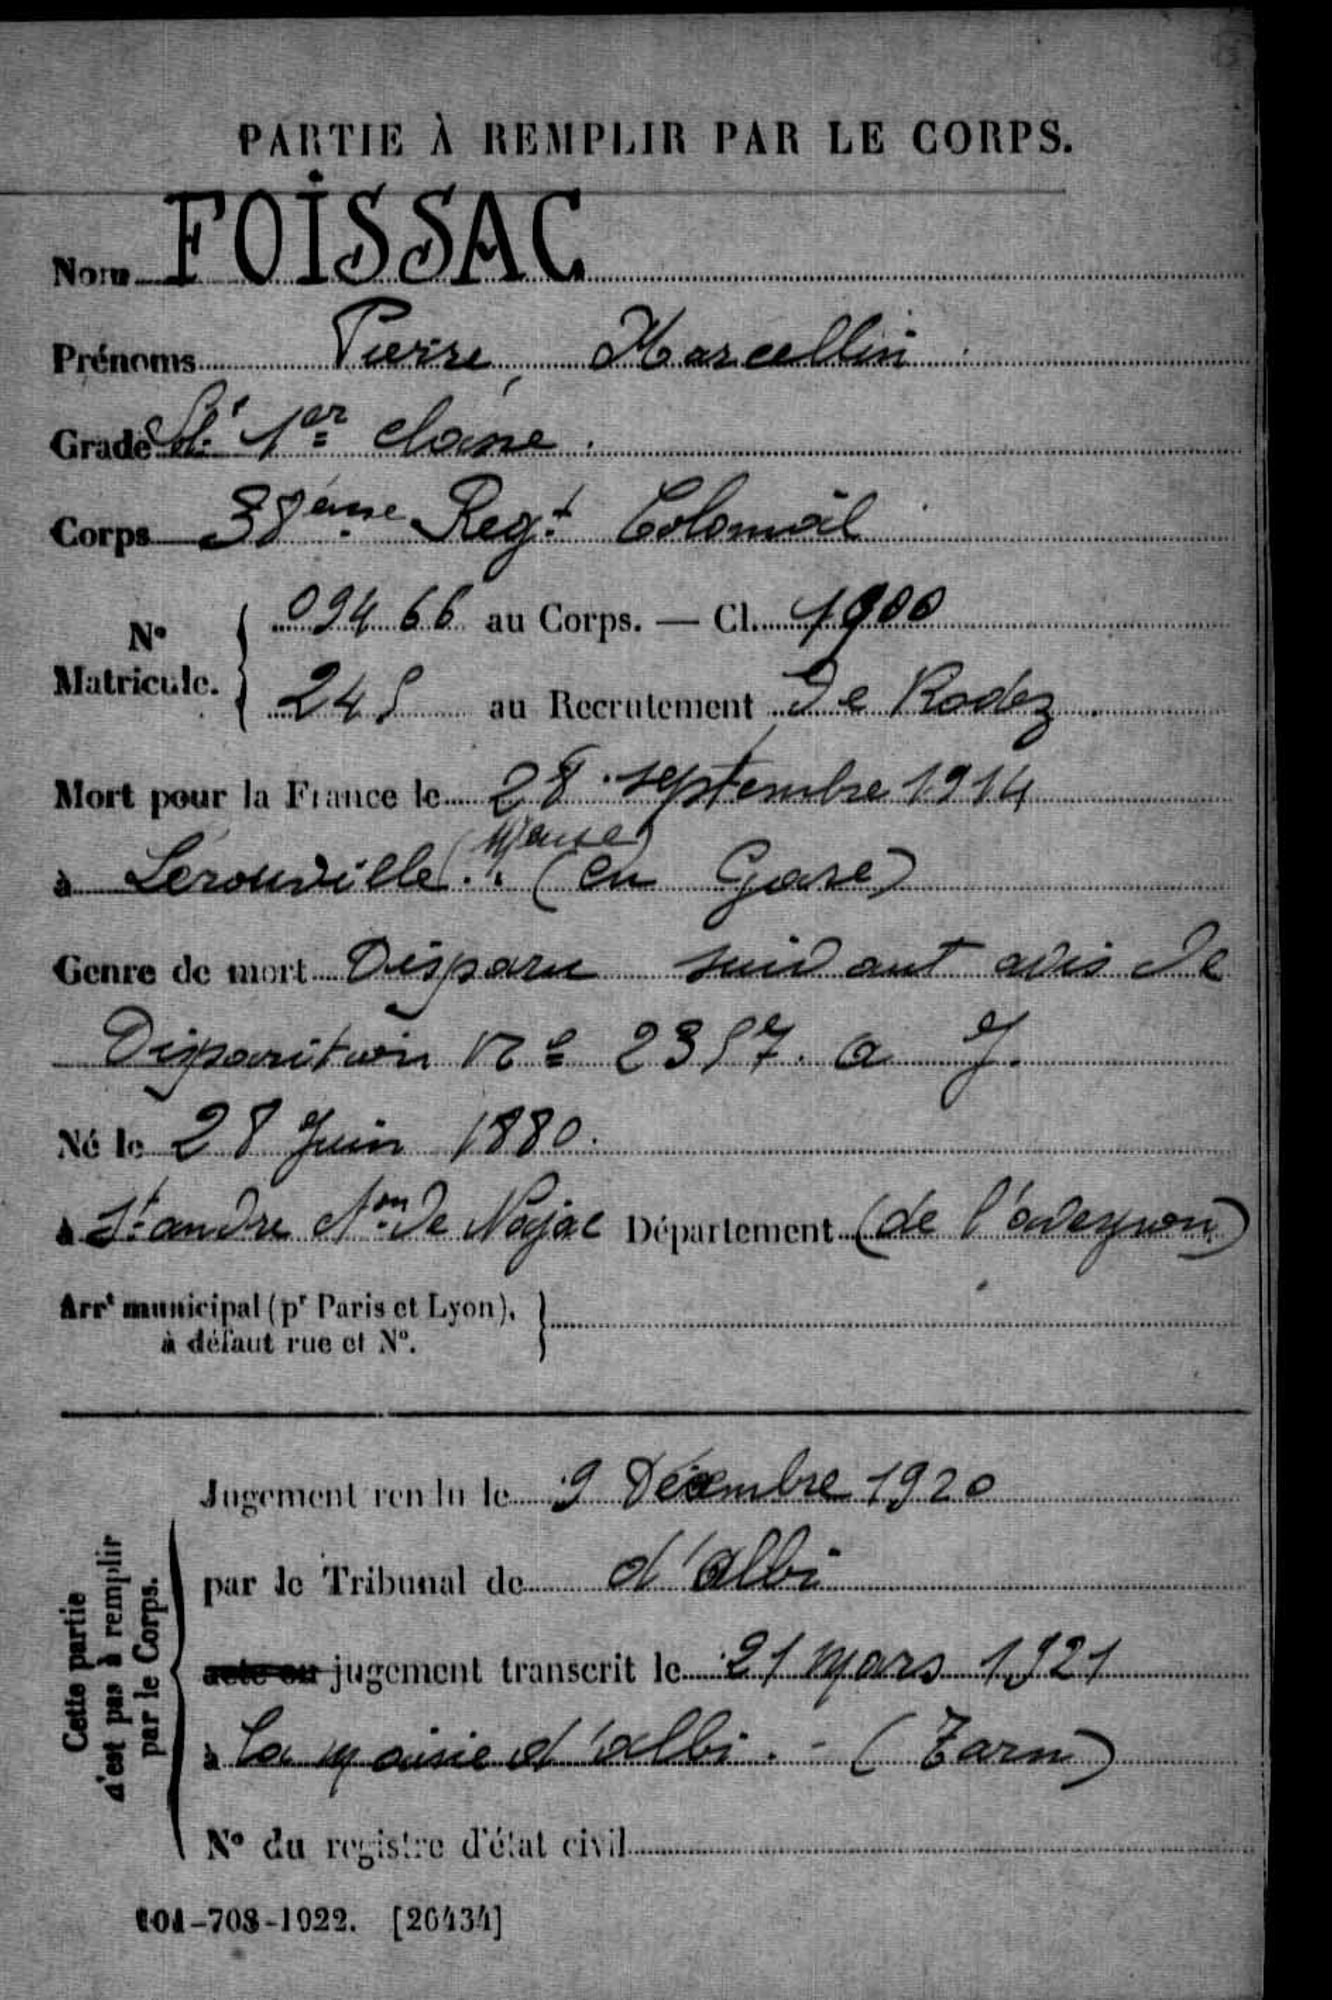 PARTIE À REMPLIR PAR LE CORPS.
Nom FOISSAC
Prénoms Pierre, Marcellin
Grade Slt 1er classe.
Corps 38ème Regt Colonial
N° Matricule. 09466 au Corps. — Cl. 1900
245 au Recrutement De Rodez.
Mort pour la France le 28 septembre 1914
à Lérouville (Meuse) (en Gare)
Genre de mort Disparu suivant avis de
Disparition No 2357. a J.
Né le 28 Juin 1880.
à St andre de Najac Département (de l'aveyron)
Arrt municipal (pr Paris et Lyon),
à défaut rue et N°.
Jugement rendu le 9 Décembre 1920
par le Tribunal de d'albi
acte ou jugement transcrit le 21 Mars 1921
à La mairie d'albi. - (Tarn)
N° du registre d'état civil
Cette partie
n'est pas à remplir
par le Corps.
101-708-1922. [26434]